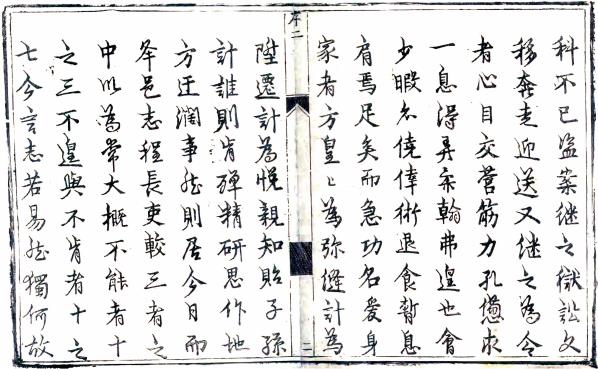 科不已盜案继之獄訟文
移奔走迎送又继之為令
者心目交營筋力孔憊求
一息淂弄柔翰弗遑也會
少暇僥倖退食暫息
肩焉足矣而急功名爱身
家者方皇〻為弥縫計為
序二
二
陞遷計為悅親知貽子孫
計誰則肯殫精研思作地
方迂濶事然則居今日而
邑志程長吏較三者之
中以為常大概不能者十
之三不遑與不肯者十之
七今言志若易然獨何故